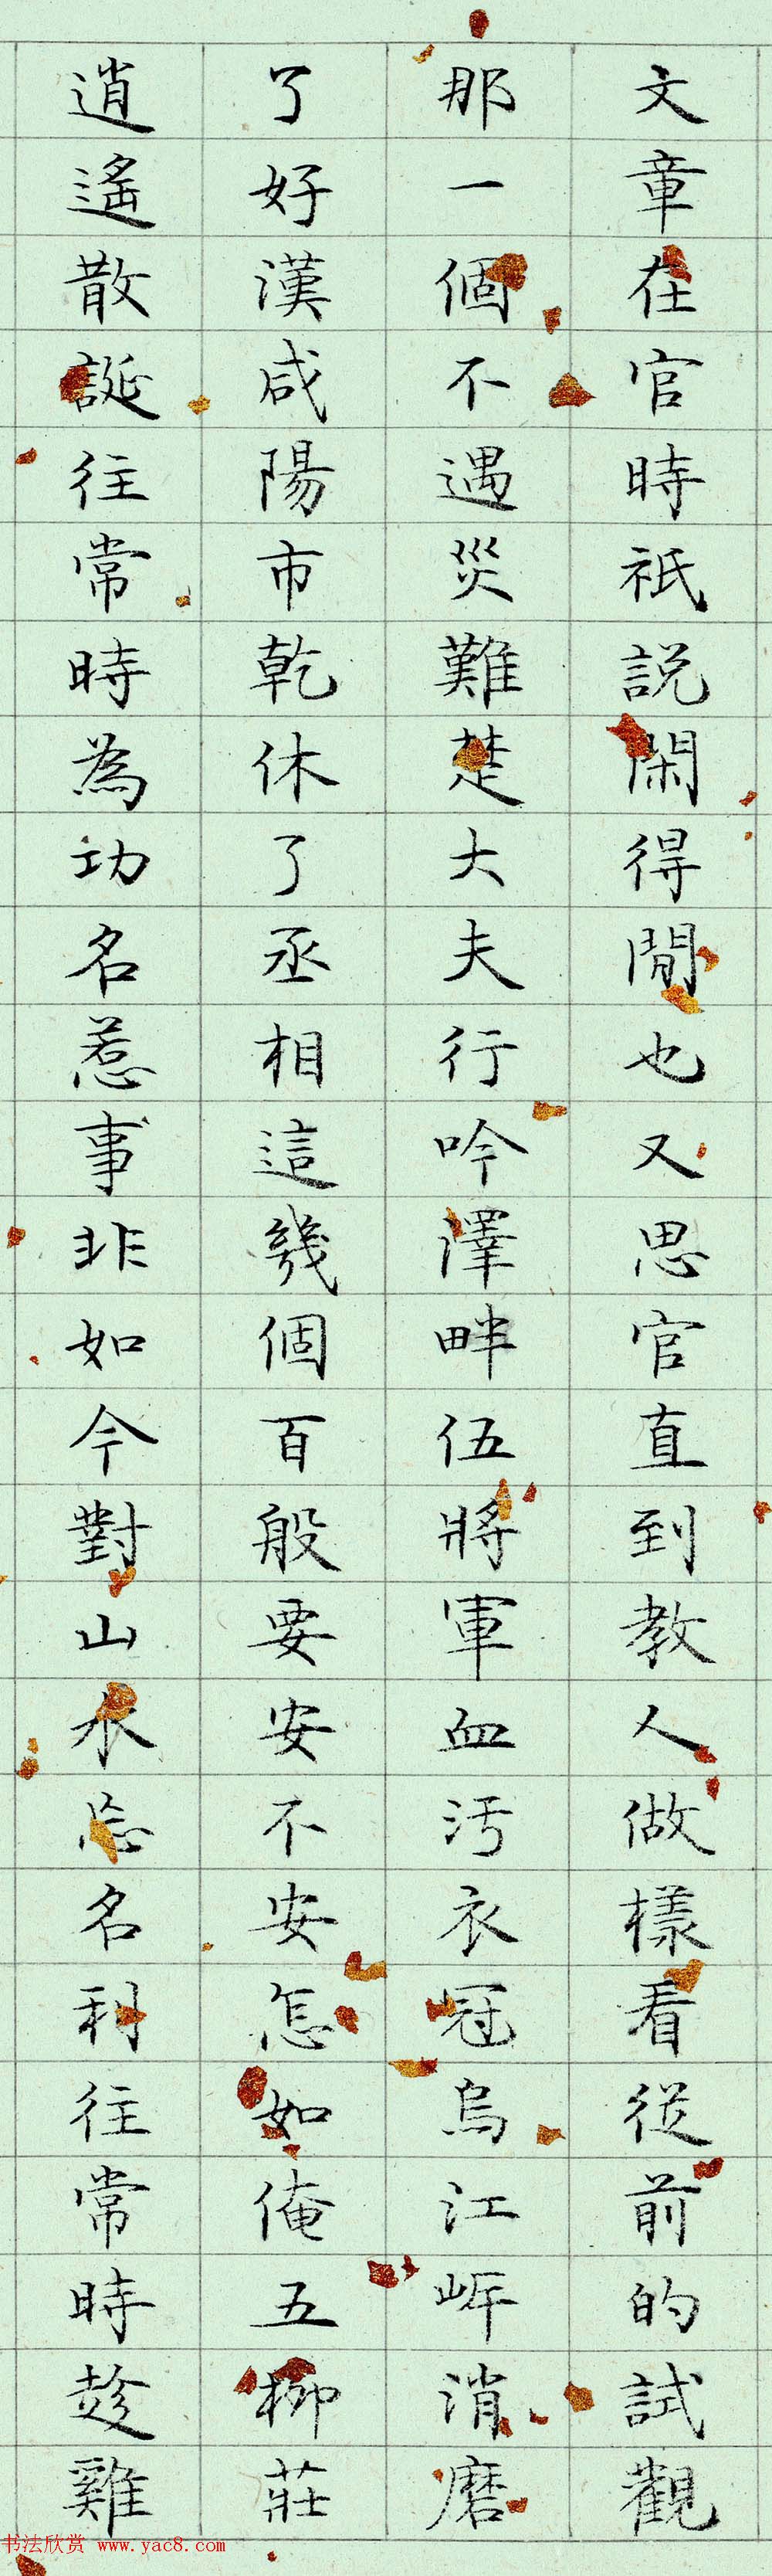 文章在官時祇説閑得閒也又思官直到教人做樣看從前的試觀
那一個不遇災難楚大夫行吟澤畔伍將軍血污衣冠烏江岍消磨
了好漢咸陽市乾休了丞相這幾個百般要安不安怎如俺五柳莊
逍遙散誕往常時為功名惹事非如今對山水忘名利往常時趁雞
书法欣赏 www.yac8.com